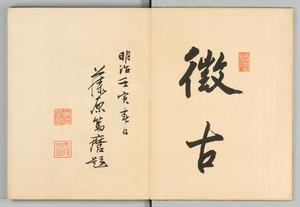 徴古
明治壬寅春日
藤原篤麿題